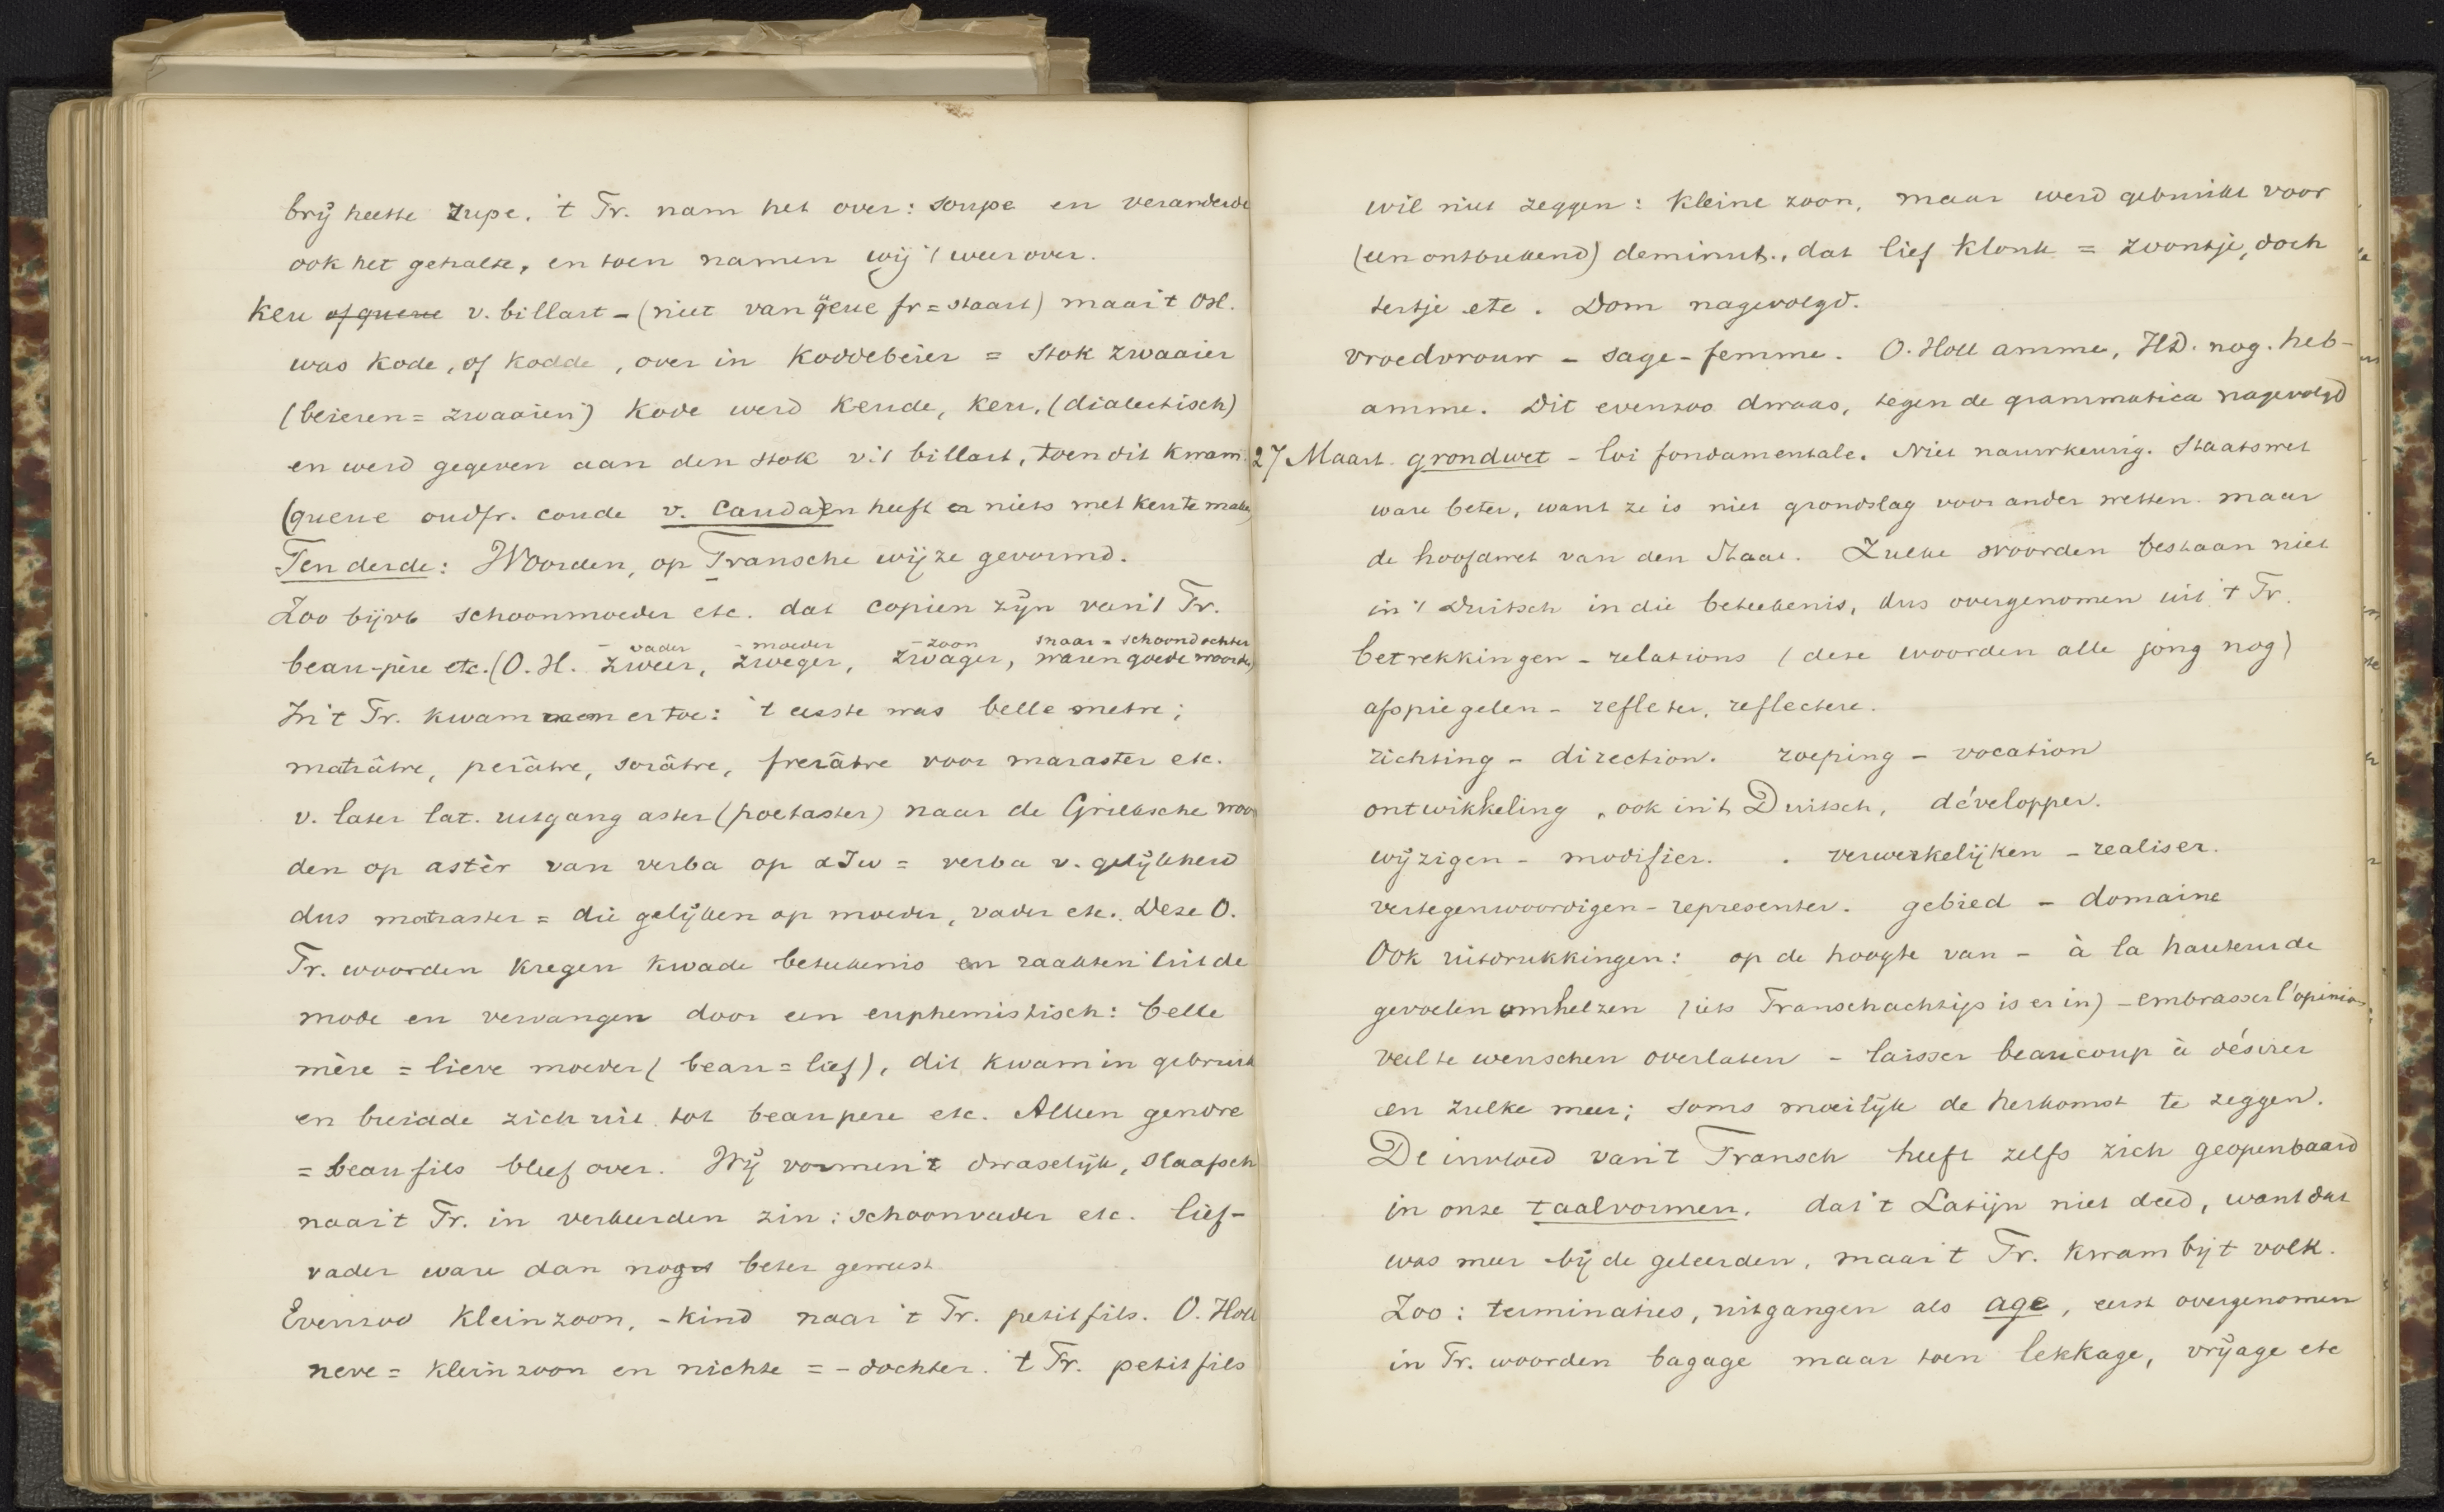 brij heette zupe. 't Fr. nam het over: soupe en veranderde
ook het gehalte, en toen namen wij 't weer over.
Keu of queue v. billart - (niet van qeue fr = staart) maar 't OH.
was kode, of kodde, over in Koddebeier = stok zwaaier
(beieren = zwaaien) Kode werd Keude, Keu, (dialectisch)
en werd gegeven aan den stok v. 't billart, toen dit kwam.
(queue oudfr. coude v. Cauda) en heeft er niets met keu te maken)
Ten derde: Woorden, op Fransche wijze gevormd.
Zoo bijvb schoonmoeder etc. dat copien zijn van 't Fr.
- vader - moeder - zoon snaar = schoondochter
beau-père etc. (O. H. zweer, zweger, zwager, waren goede woorden)
In 't Fr. kwam men er toe: 't eerste was belle metre;
matrâtre, perâtre, sorâtre, frerâtre voor maraster etc.
v. later lat. uitgang aster (poetaster) naar de Grieksche woor
den op astèr van verba op αζω = verba v. gelijkheid
dus matraster = die gelijken op moeder, vader etc. Deze O.
Fr. woorden kregen kwade beteekenis en raakten uit de
mode en vervangen door een euphemistisch: belle
mère = lieve moeder (beau = lief), dit kwam in gebruik
en breidde zich uit tot beaupere etc. Alleen gendre
= beau fils bleef over. Wij vormen 't dwaselijk, slaafsch
naar 't Fr. in verkeerden zin: schoonvader etc. lief-
vader ware dan nog beter geweest
Evenzoo kleinzoon, -kind naar 't Fr. petitfils. O. Holl
neve = kleinzoon en nichte = - dochter. 't Fr. petitfils
wil niet zeggen: kleine zoon, maar werd gebruikt voor
(een ontbrekend) deminut., dat lief klonk = zoontje, doch
tertje etc. Dom nagevolgd.
vroedvrouw - sage-femme. O. Holl amme, HD. nog. heb-
amme. Dit evenzoo dwaas, tegen de grammatica nagevolgd
27 Maart. grondwet - loi fondamentale. Niet nauwkeurig. Staatswet
ware beter, want ze is niet grondslag voor ander wetten. maar
de hoofdwet van den Staat. Zulke woorden bestaan niet
in 't Duitsch in die beteekenis, dus overgenomen uit 't Fr.
betrekkingen - relations (deze woorden alle jong nog)
afspiegelen - refleter, reflectere.
richting - direction. roeping - vocation
ontwikkeling, ook in 't Duitsch, développer.
wijzigen - modifier. verwerkelijken - realiser.
vertegenwoordigen - representer. gebied - domaine
Ook uitdrukkingen: op de hoogte van - à la hauteur de
gevoelen omhelzen (iets Franschachtigs is er in) - embrasser l'opinion
veel te wenschen overlaten - laisser beaucoup à désirer
en zulke meer; soms moeilijk de herkomst te zeggen.
De invloed van 't Fransch heeft zelfs zich geopenbaard
in onze taalvormen. dat 't Latijn niet deed, want dat
was meer bij de geleerden, maar 't Fr. kwam bij 't volk.
Zoo: terminaties, uitgangen als age, eerst overgenomen
in Fr. woorden bagage maar toen lekkage, vrijage etc